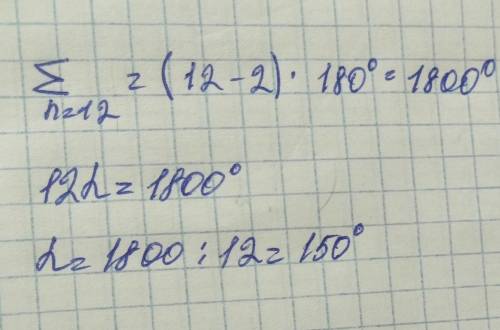 ∑ n=12 = (12-2)· 180° = 1800°
12α = 1800°
α = 1800 : 12 = 150°